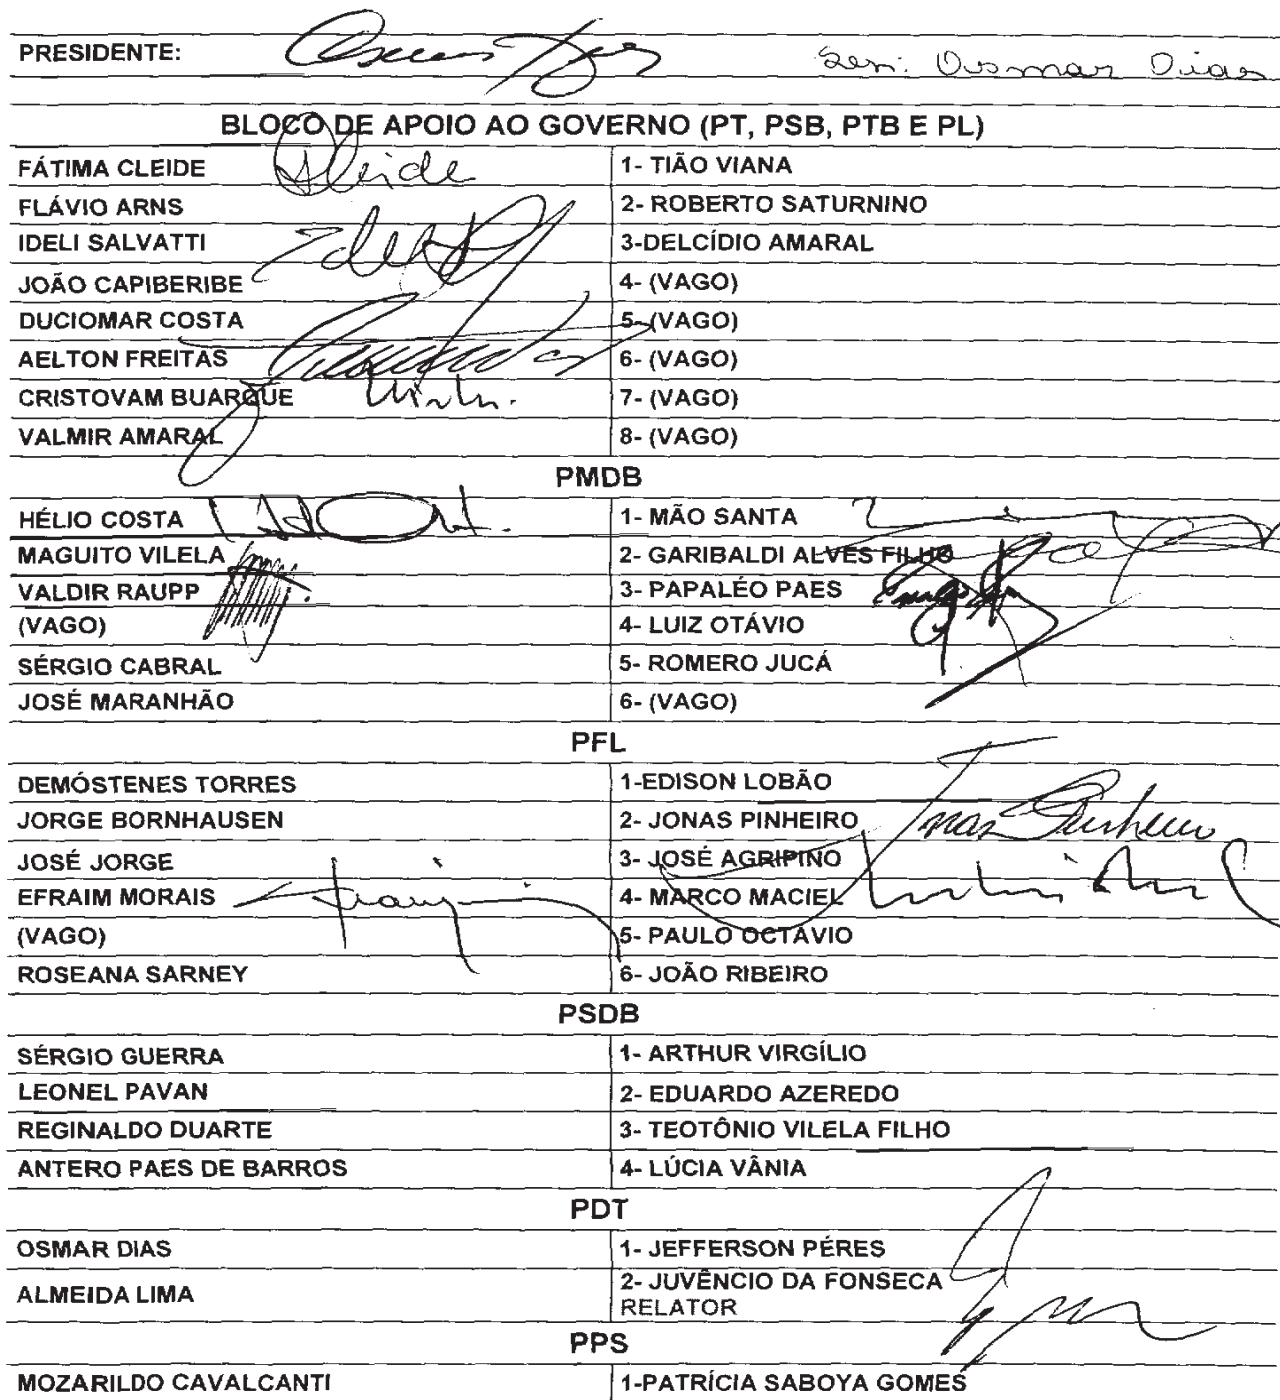 PRESIDENTE: Sen: Osmar Dias
BLOCO DE APOIO AO GOVERNO (PT, PSB, PTB E PL)
FÁTIMA CLEIDE Cleide 1- TIÃO VIANA
FLÁVIO ARNS 2- ROBERTO SATURNINO
IDELI SALVATTI Ideli 3-DELCÍDIO AMARAL
JOÃO CAPIBERIBE 4- (VAGO)
DUCIOMAR COSTA 5- (VAGO)
AELTON FREITAS 6- (VAGO)
CRISTOVAM BUARQUE 7- (VAGO)
VALMIR AMARAL 8- (VAGO)
PMDB
HÉLIO COSTA 1- MÃO SANTA
MAGUITO VILELA 2- GARIBALDI ALVES FILHO
VALDIR RAUPP 3- PAPALÉO PAES
(VAGO) 4- LUIZ OTÁVIO
SÉRGIO CABRAL 5- ROMERO JUCÁ
JOSÉ MARANHÃO 6- (VAGO)
PFL
DEMÓSTENES TORRES 1-EDISON LOBÃO
JORGE BORNHAUSEN 2- JONAS PINHEIRO Jonas Pinheiro
JOSÉ JORGE 3- JOSÉ AGRIPINO
EFRAIM MORAIS 4- MARCO MACIEL
(VAGO) 5- PAULO OCTÁVIO
ROSEANA SARNEY 6- JOÃO RIBEIRO
PSDB
SÉRGIO GUERRA 1- ARTHUR VIRGÍLIO
LEONEL PAVAN 2- EDUARDO AZEREDO
REGINALDO DUARTE 3- TEOTÔNIO VILELA FILHO
ANTERO PAES DE BARROS 4- LÚCIA VÂNIA
PDT
OSMAR DIAS 1- JEFFERSON PÉRES
ALMEIDA LIMA 2- JUVÊNCIO DA FONSECA
RELATOR
PPS
MOZARILDO CAVALCANTI 1-PATRÍCIA SABOYA GOMES